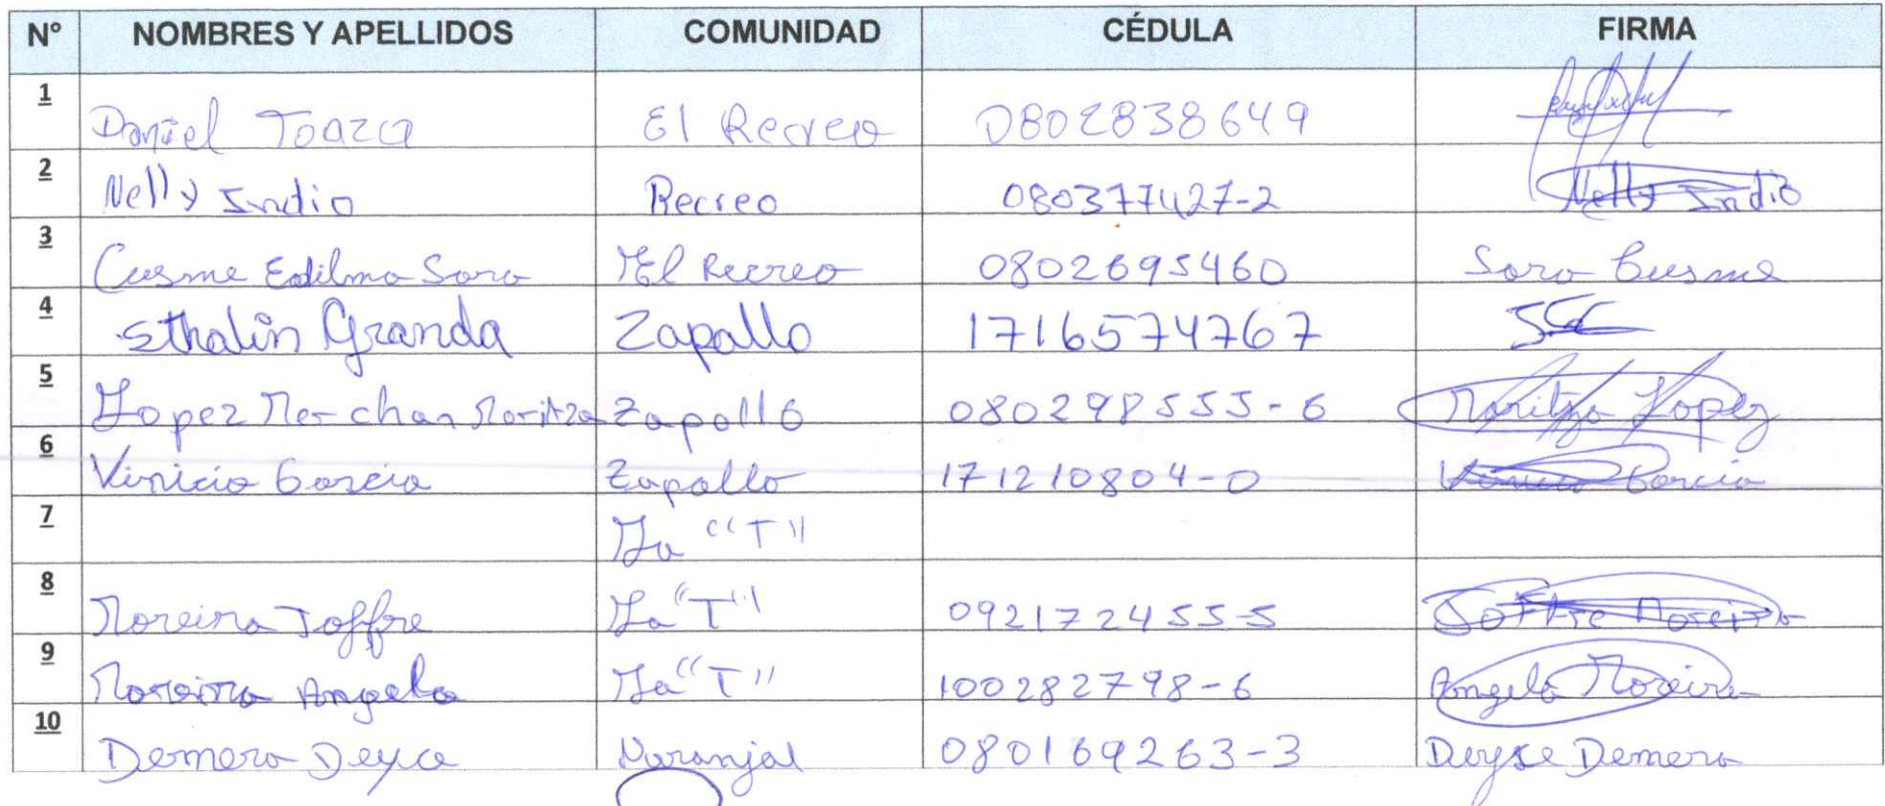 N° NOMBRES Y APELLIDOS COMUNIDAD CÉDULA FIRMA
1 Daniel Toaza El Recreo 0802838649
2 Nelly Indio Recreo 080377427-2 Nelly Indio
3 Cusme Edilma Sara El Recreo 0802695460 Sara Cusme
4 Sthalin Granda Zapallo 1716574767
5 Lopez Merchan Maritza Zapallo 080298555-6 Maritza Lopez
6 Vinicio Garcia Zapallo 171210804-0 Vinicio Garcia
7 La "T"
8 Moreira Joffre La "T" 092172455-5 Joffre Moreira
9 Moreira Angela La "T" 100282798-6 Angela Moreira
10 Demera Deyce Naranjal 080169263-3 Deyse Demera